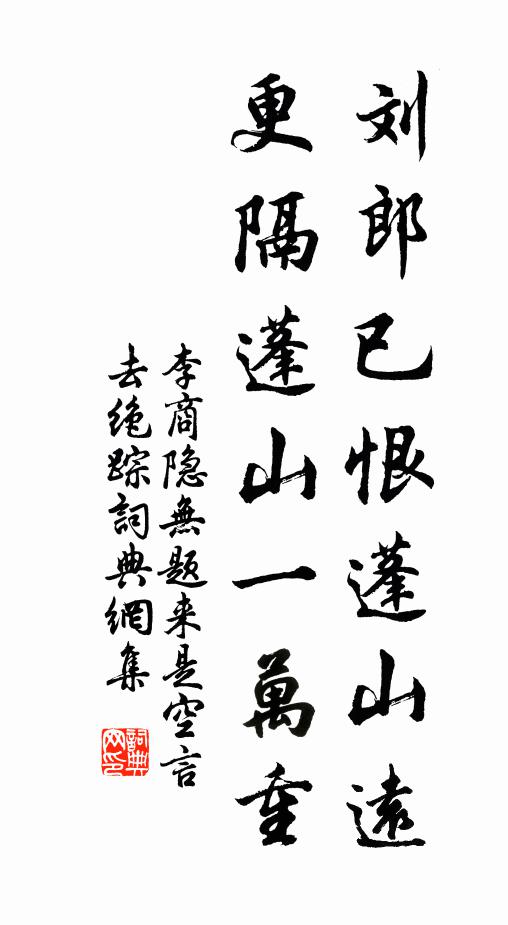 刘郎已恨蓬山遠
更隔蓬山一萬重
李商隐無题来是空言
去绝踪詞典網集
詞典网印